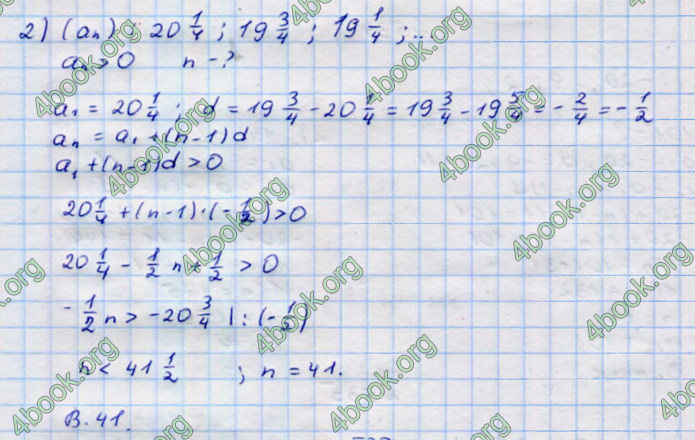 2) (aₙ): 20 1/4 ; 19 3/4 ; 19 1/4 ; ...
aₙ > 0 n - ?
a₁ = 20 1/4 ; d = 19 3/4 - 20 1/4 = 19 3/4 - 19 5/4 = - 2/4 = - 1/2
aₙ = a₁ + (n-1)d
a₁ + (n-1)d > 0
20 1/4 + (n-1)·(- 1/2) > 0
20 1/4 - 1/2 n + 1/2 > 0
- 1/2 n > -20 3/4 | : (- 1/2)
n < 41 1/2 ; n = 41.
В. 41.
4book.org